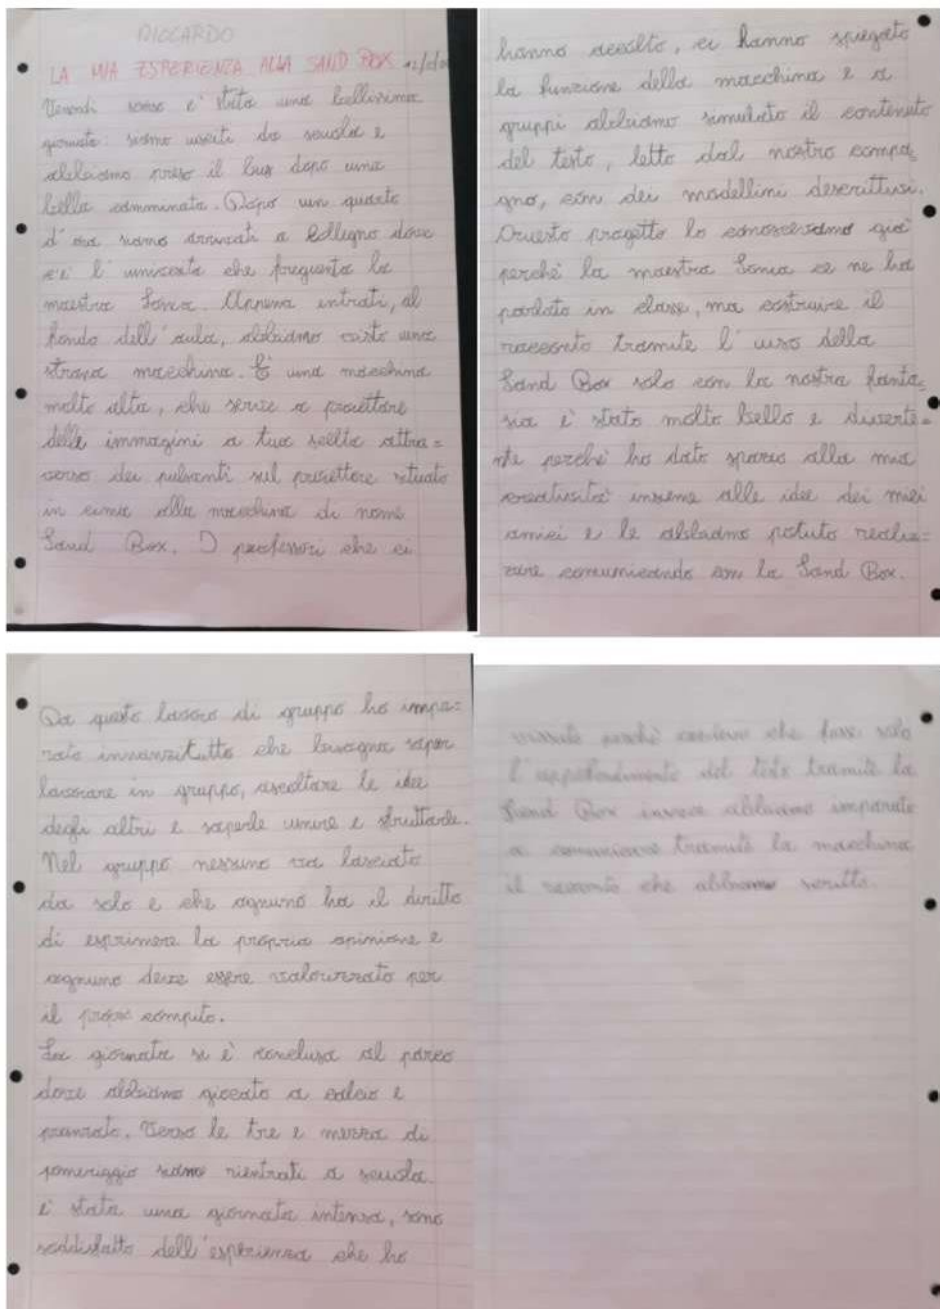 RICCARDO
LA MIA ESPERIENZA ALLA SAND BOX
Venerdì scorso e' stata una bellissima
giornata: siamo usciti da scuola e
abbiamo preso il bus dopo una
bella camminata. Dopo un quarto
d'ora siamo arrivati a Collegno dove
c'e' l'università che frequenta la
maestra Sonia. Appena entrati, al
fondo dell'aula, abbiamo visto una
strana macchina. È una macchina
molto alta, che serve a proiettare
delle immagini a tua scelta attra=
verso dei pulsanti sul proiettore situato
in cima alla macchina di nome
Sand Box. I professori che ci
hanno accolto, ci hanno spiegato
la funzione della macchina e a
gruppi abbiamo simulato il contenuto
del testo, letto dal nostro compa=
gno, con dei modellini descrittivi.
Questo progetto lo conoscevamo già
perché la maestra Sonia ce ne ha
parlato in classe, ma costruire il
racconto tramite l'uso della
Sand Box solo con la nostra fanta=
sia è stato molto bello e diverte=
nte perché ho dato spazio alla mia
creatività insieme alle idee dei miei
amici e le abbiamo potuto realiz=
zare comunicando con la Sand Box.
Da questo lavoro di gruppo ho impa=
rato innanzitutto che bisogna saper
lavorare in gruppo, ascoltare le idee
degli altri e saperle unire e sfruttarle.
Nel gruppo nessuno va lasciato
da solo e che ognuno ha il diritto
di esprimere la propria opinione e
ognuno deve essere valorizzato per
il compito.
La giornata si è conclusa al parco
dove abbiamo giocato a calcio e
pranzato. Verso le tre e mezza di
pomeriggio siamo rientrati a scuola.
è stata una giornata intensa, sono
soddisfatto dell'esperienza che ho
vissuto perché credevo che fosse solo
l'approfondimento del testo tramite la
Sand Box invece abbiamo imparato
a comunicare tramite la macchina
il racconto che abbiamo scritto.